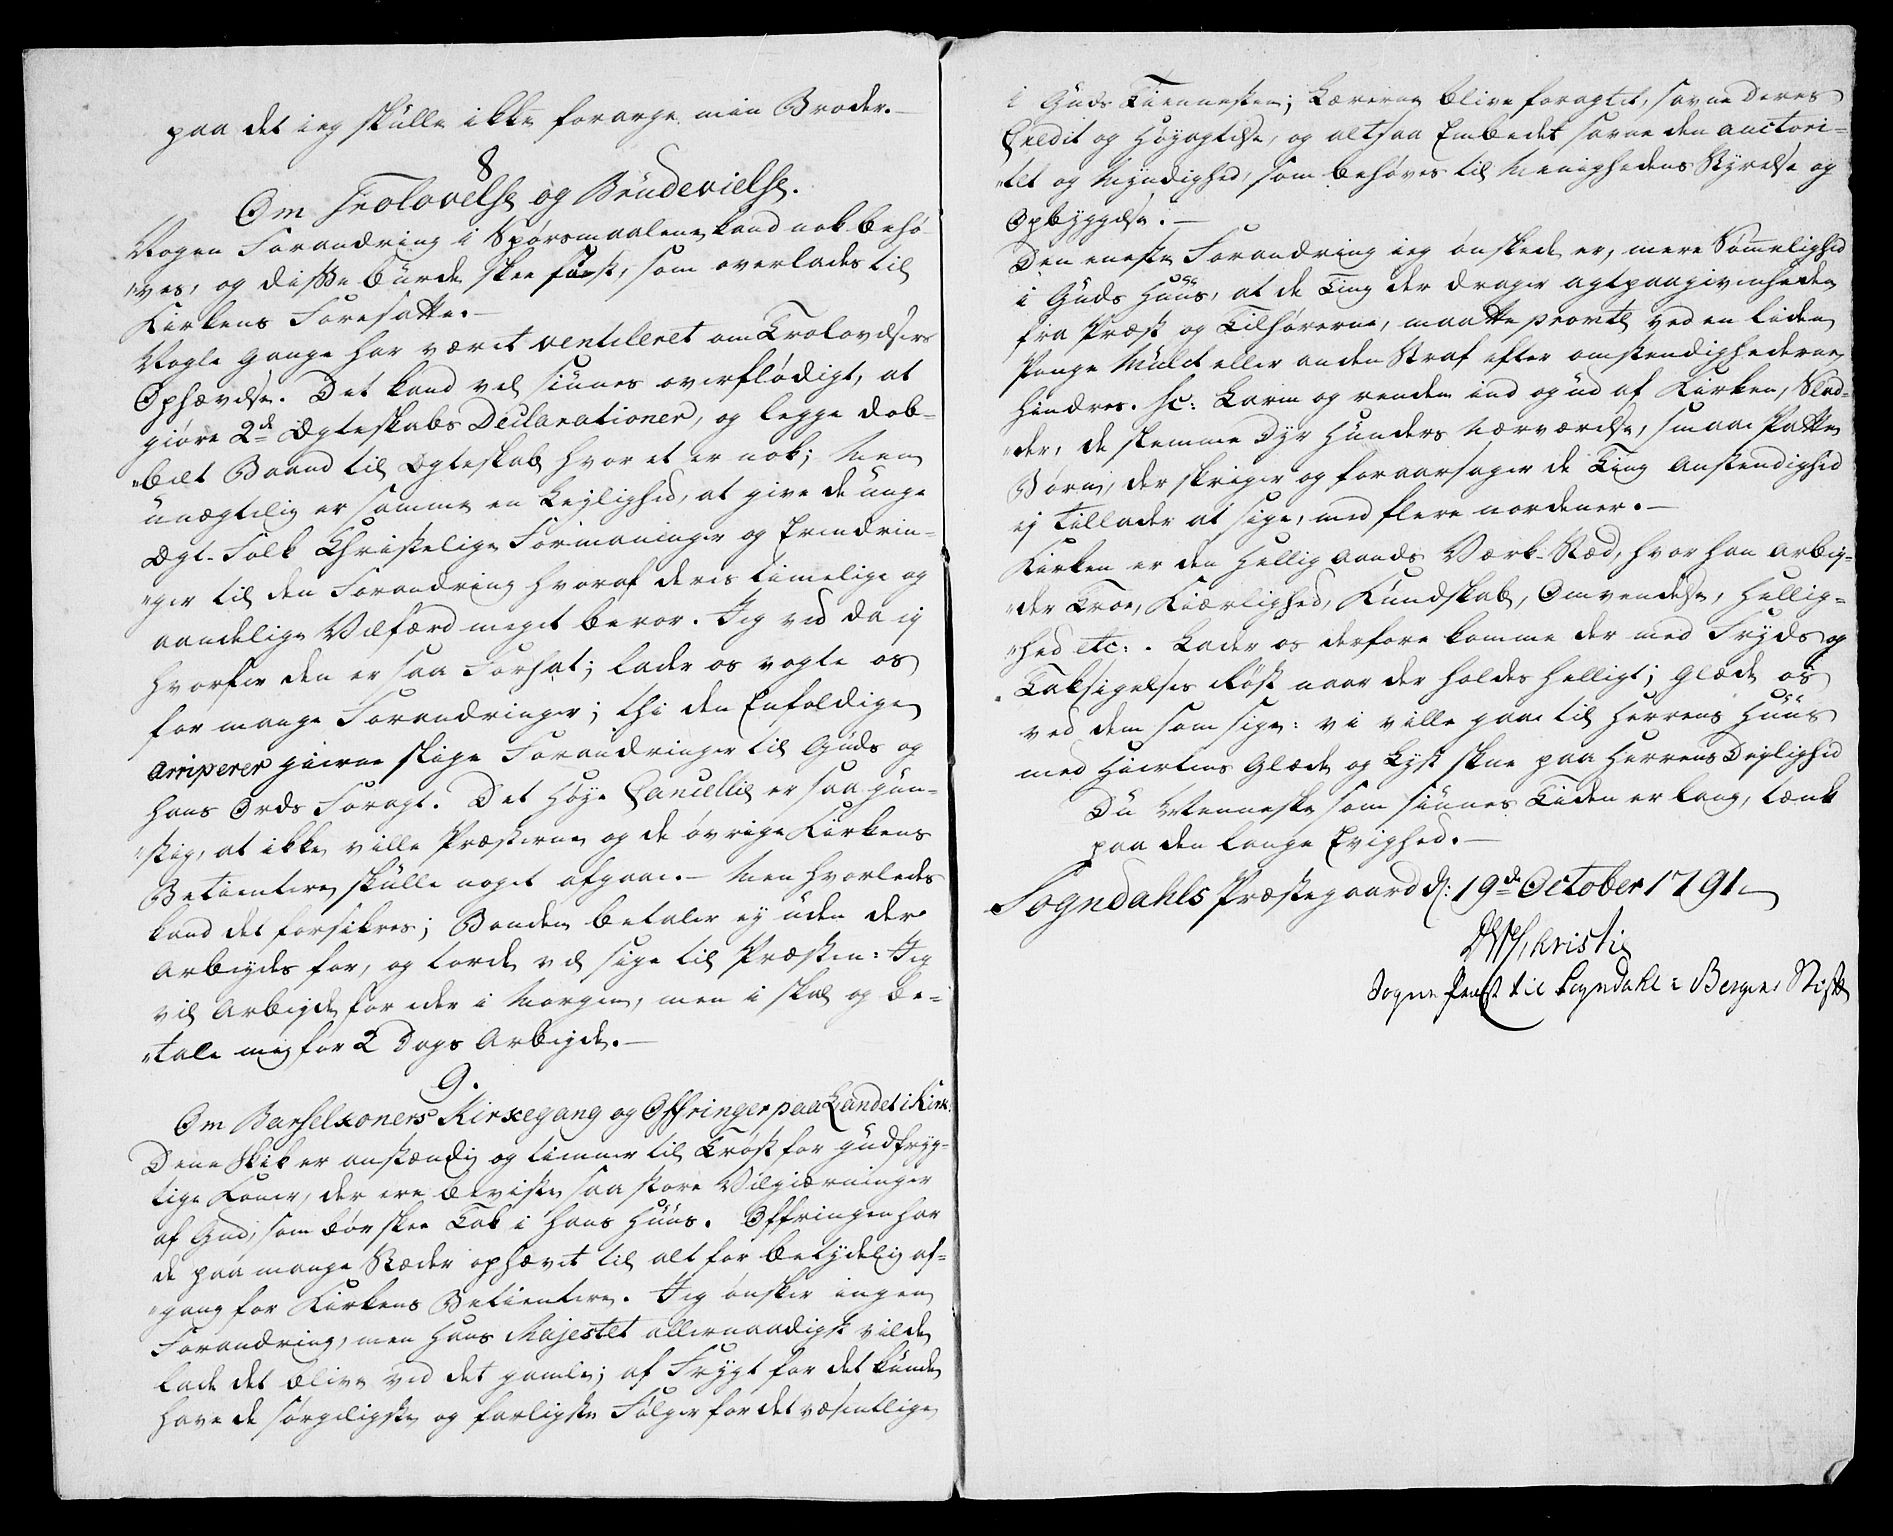 paa det ieg skulle ikke forarge min Broder.—
8
Om Trolovelse og Brudevielse.
Nogen Forandring i Spørsmaalene kand nok behø
"ves, og disse burde skee først, som overlades til
Kirkens Foresatte.—
Nogle Gange har været ventileret om Trolovelsers
Ophævelse. Det kand vel siunes overflødigt, at
giøre 2de Ægteskabs Declarationer, og legge dob-
"belt Baand til Ægteskab hvor et er nok; Men
unægtelig er samme en Lejlighed, at give de unge
Ægte-Folk Christelige Formaninger og Erindrin-
"ger til den Forandring hvoraf deres timelige og
aandelige Velfærd meget beror. Jeg ved da ej
hvorfor den er saa Forhat; lader os vogte os
for mange Forandringer; thi den Enfoldige
arriperer gierne slige Forandringer til Guds og
hans Ords Foragt. Det Høye Cancellie er saa gun-
"stig, at ikke ville Præsterne og de øvrige Kirkens
Betientere skulle noget afgaae.— Men hvorledes
kand det forsikres; Bonden betaler ej uden der
Arbeydes for, og torde vel sige til Præsten: Jeg
vil Arbeyde for eder i Morgen, men i skal og be-
"tale mig for 2 Dags Arbeyde.—
9.
Om Barselkoners Kirkegang og Offringer paa Landet i Kirk.
Dene Skik er anstændig og tienner til Trøst for gudfryg-
tige Koner, der ere beviste saa store Velgierninger
af Gud, som bør skee Tak i hans Huus. Offringen har
de paa mange Stæder ophævet til alt for betydelig af-
"gang for Kirkens Betientere. Jeg ønsker ingen
Forandring, men Hans Majestet allernaadigst vilde
lade det blive ved det gamle; af Frygt for det kunde
have de sørgeligste og farligste Følger for det væsentlige
i Guds Tiennesten; Lærerne blive foragtet, savne deres
Credit og Høyagtelse, og altsaa Embedet savne den auctori-
"tet og Myndighed, som behøves til Menighedens Styrelse og
Opbyggelse.—
Den eneste Forandring ieg ønskede er, mere Sømelighed
i Guds Huus, at de Ting der drager agtpaagivenheden
fra Præst og Tilhørerne, maatte promte ved en liden
Penge Mulct eller anden Straf efter omstendighederne
hindres. sc: Larm og renden ind og ud af Kirken, Slad-
"der, de stemme Dyr Hunders nærværelse, smaae Patte
Børn, der skriger og foraarsager de Ting Anstendighed
ej tillader at sige, med flere uordener.—
Kirken er den Hellig Aands Værk-Stæd, hvor han Arbey-
"der Troe, Kiærlighed, Kundskab, Omvendelse, Hellig-
"hed etc:. Lader os derfore komme der med Fryds og
Taksigelses Røst naar der holdes helligt; Glæde os
ved dem som sige: vi ville gaae til Herrens Huus
med Hiertens Glæde og Lyst skue paa Herrens Dejlighed
Du Menneske som siunes Tiden er lang, tænk
paa den lange Evighed.—
Sogndahls Præstegaard d: 19de October 1791.
Christie
Sogne Præst til Sogndahl i Bergens Stift